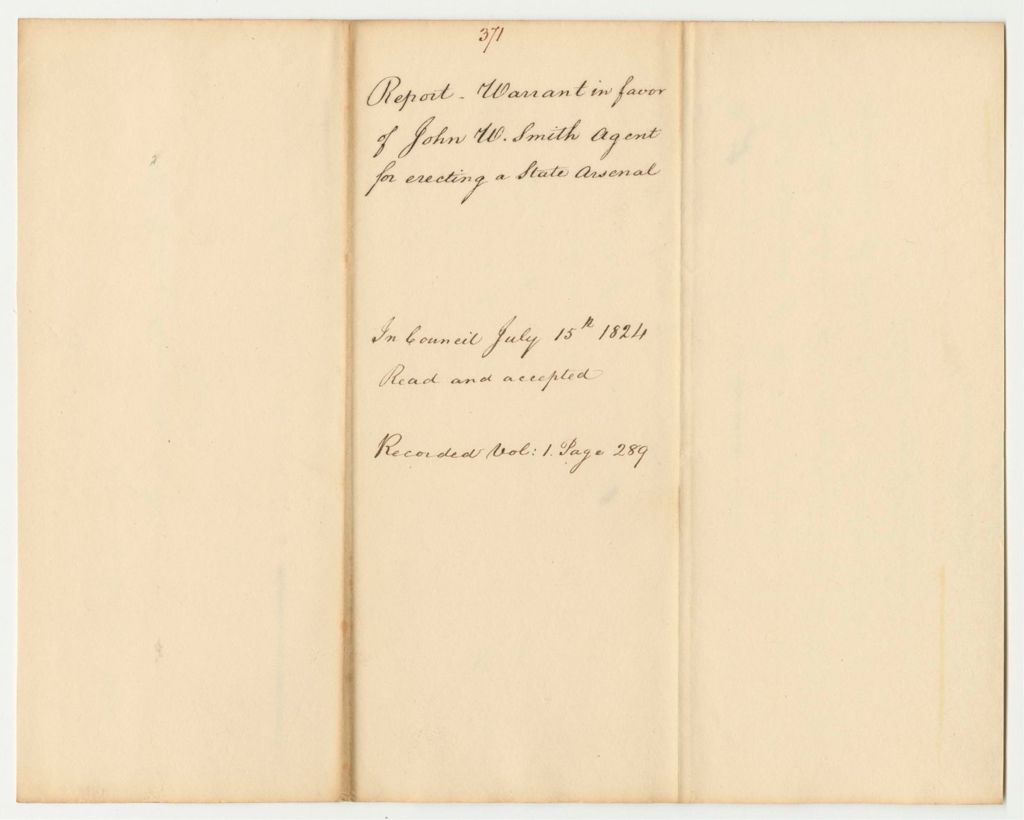 371
Report - Warrant in favor
of John W. Smith Agent
for erecting a State Arsenal
In Council July 15th 1824
Read and accepted
Recorded Vol: 1. Page 289